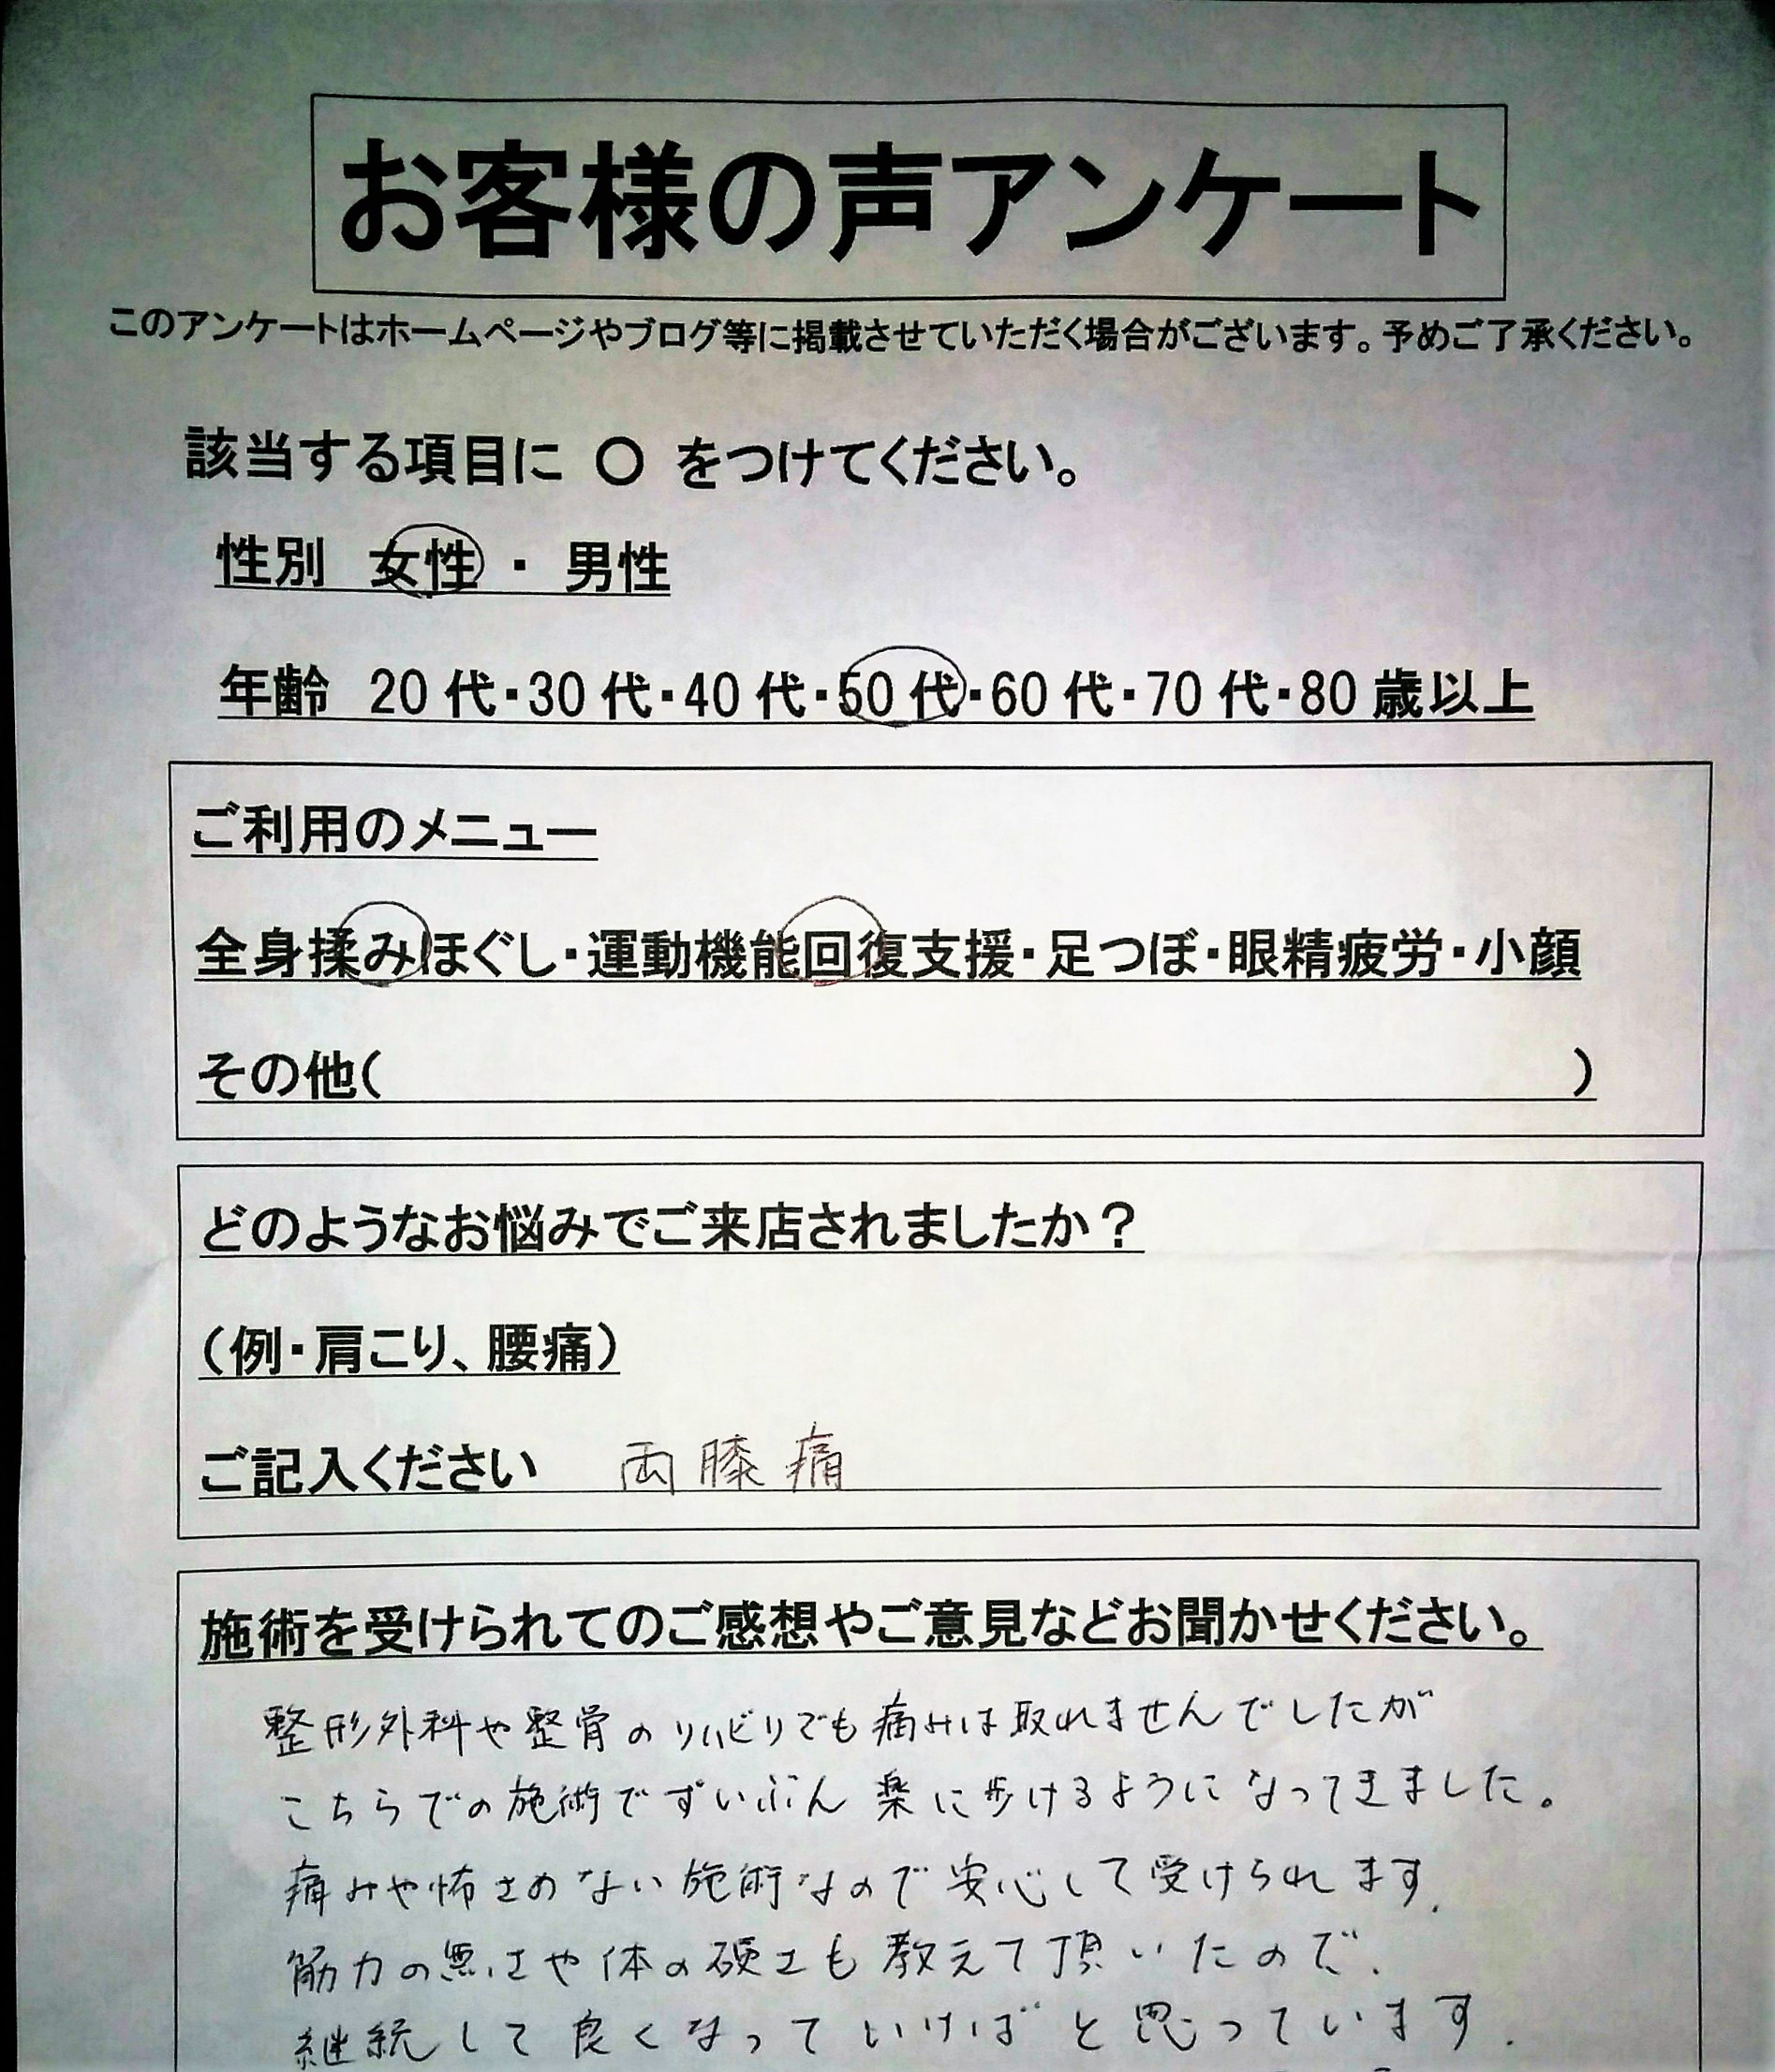 お客様の声アンケート
このアンケートはホームページやブログ等に掲載させていただく場合がございます。予めご了承ください。
該当する項目に 〇 をつけてください。
性別 女性 ・ 男性
年齢 20代・30代・40代・50代・60代・70代・80歳以上
ご利用のメニュー
全身揉みほぐし・運動機能回復支援・足つぼ・眼精疲労・小顔
その他( )
どのようなお悩みでご来店されましたか？
（例・肩こり、腰痛）
ご記入ください 両膝痛
施術を受けられてのご感想やご意見などお聞かせください。
整形外科や整骨のリハビリでも痛みは取れませんでしたが
こちらでの施術でずいぶん楽に歩けるようになってきました。
痛みや怖さのない施術なので安心して受けられます.
筋力の無さや体の硬さも教えて頂いたので、
継続して良くなっていければと思っています.